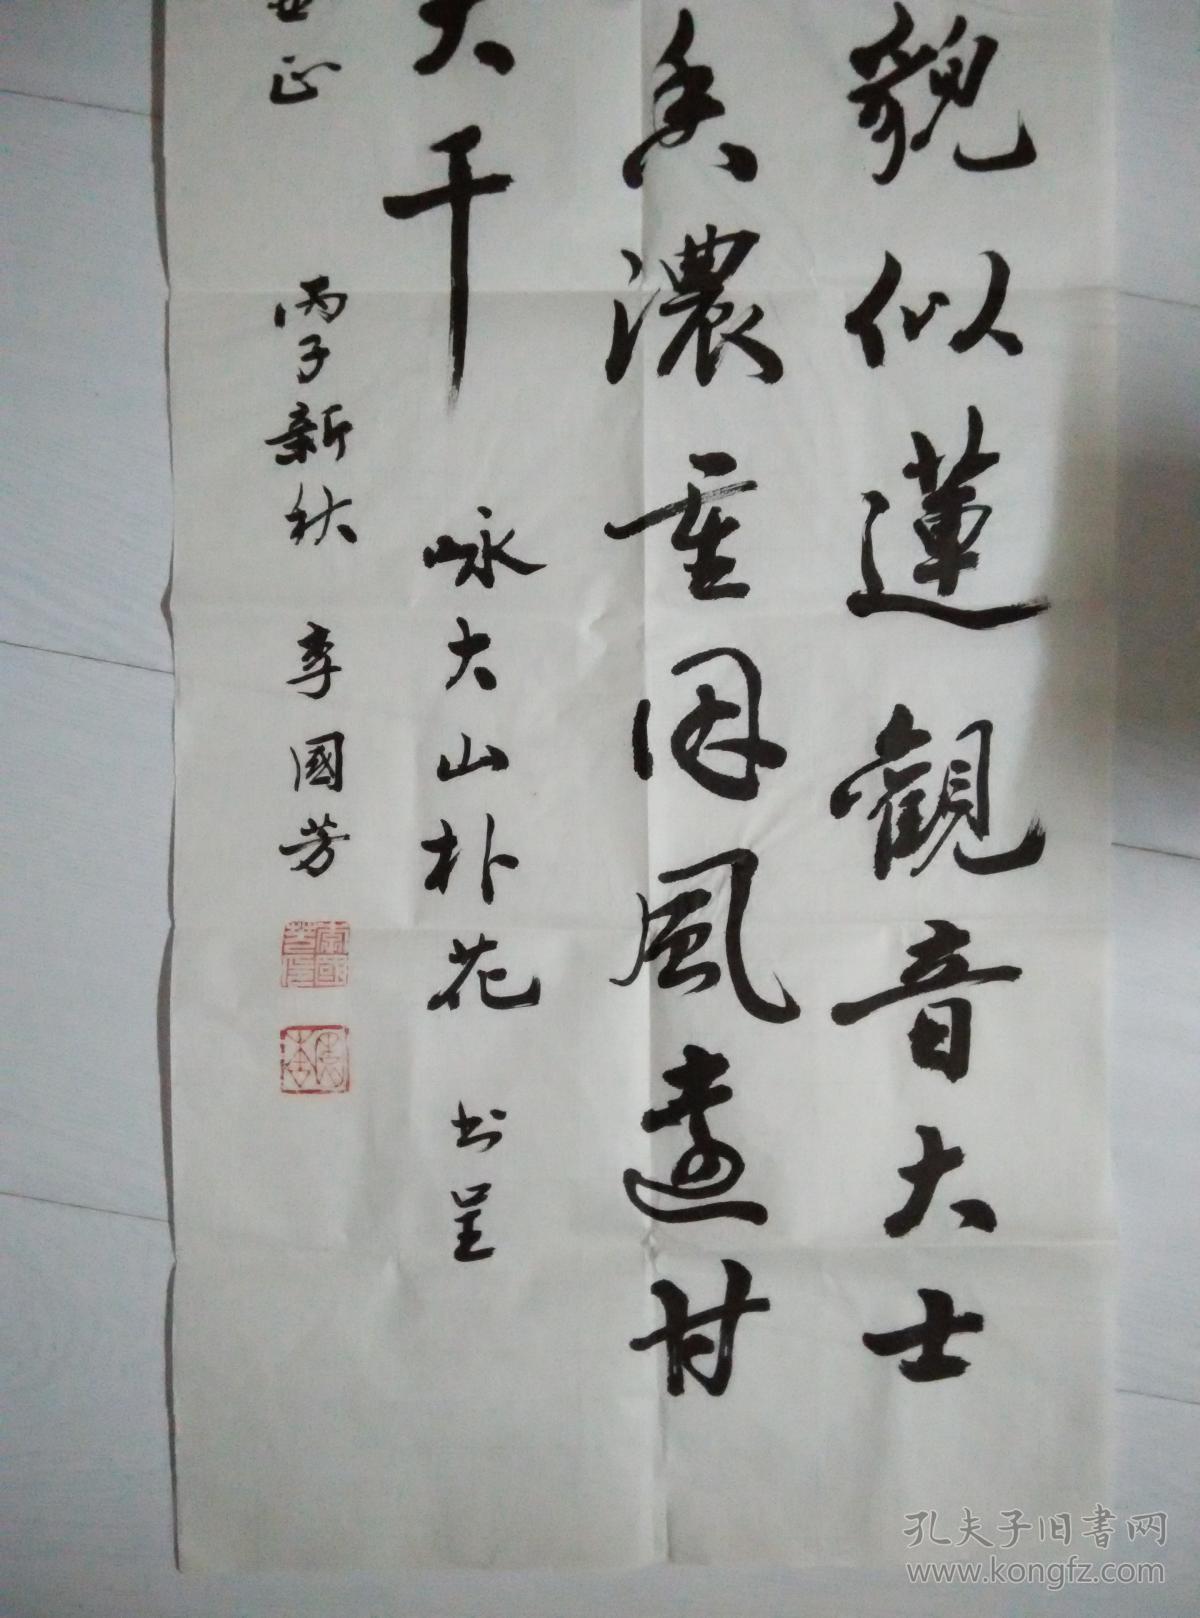 貌似蓮觀音大士
香濃重因風遠甘
大千 咏大山朴花 书呈
正 丙子新秋 李國芳
孔夫子旧書网
www.kongfz.com